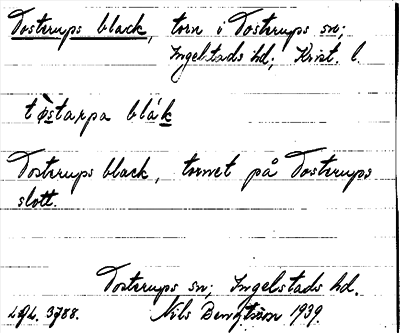 Tosterups black, torn i Tosterups sn;
Ingelstads hd; Krist. l.
tòstarpa blák
Tosterups black, tornet på Tosterups
slott.
Tosterups sn; Ingelstads hd.
3788. Nils Bengtsson 1939.